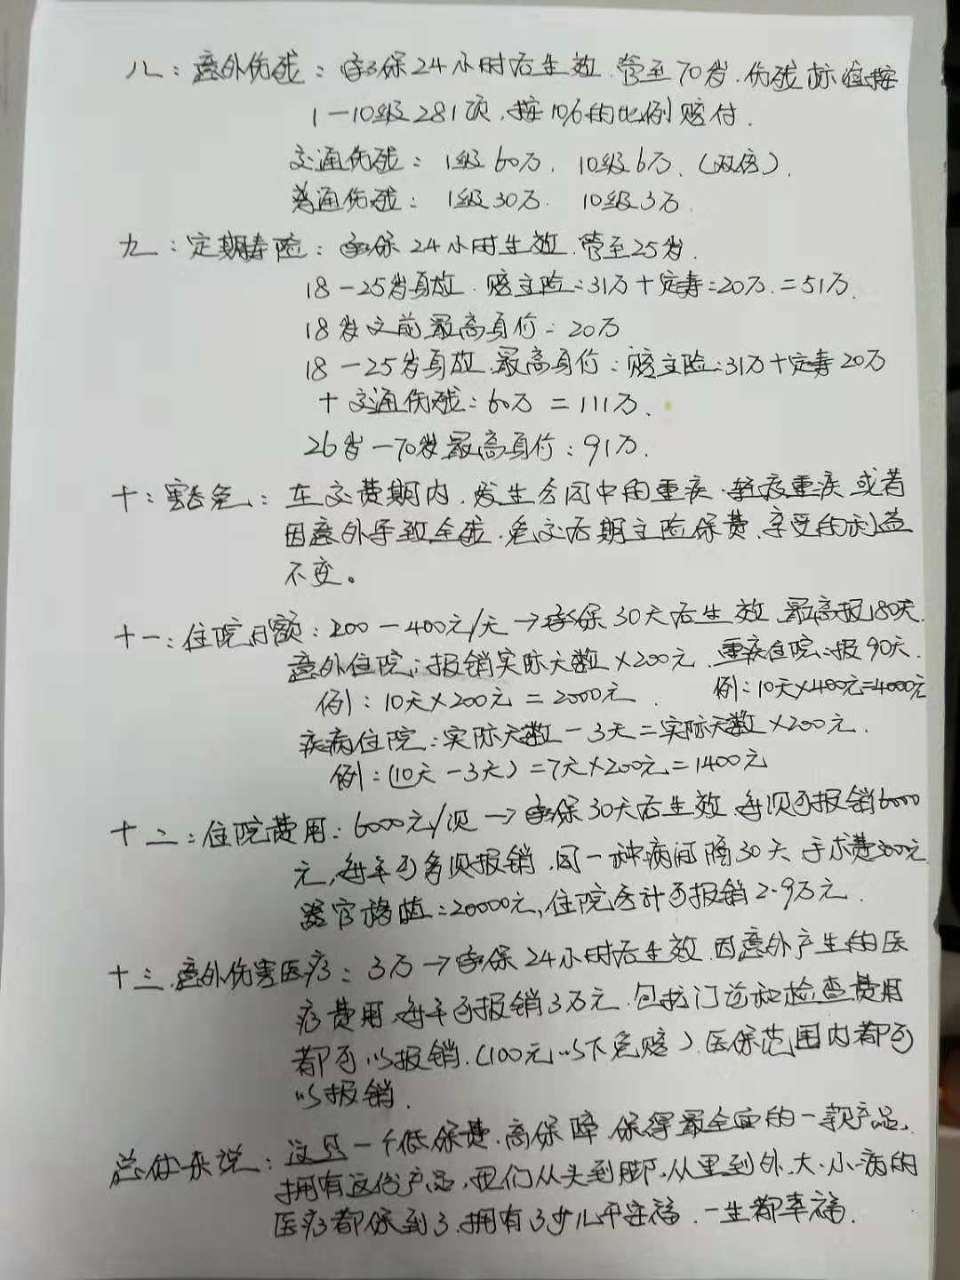 八：意外伤残：承保24小时后生效.管至70岁.伤残标准按
1－10级281项.按10%的比例赔付.
交通伤残：1级60万.10级6万.(双倍).
普通伤残：1级30万.10级3万.
九：定期寿险：承保24小时生效.管至25岁.
18－25岁身故.赔主险:31万+定寿:20万.=51万.
18岁之前最高身价：20万
18－25岁身故.最高身价：赔主险:31万+定寿20万
+交通伤残:60万=111万.
26岁－70岁最高身价：91万.
十：豁免：在交费期内.发生合同中的重疾.轻度重疾或者
因意外导致全残.免交后期主险保费.享受的利益
不变。
十一：住院日额：200－400元/天→承保30天后生效.最高报180天.
意外住院:报销实际天数×200元.重疾住院:报90天.
例：10天×200元=2000元.例：10天×400元=4000元
疾病住院:实际天数－3天=实际天数×200元.
例：(10天－3天)=7天×200元=1400元
十二：住院费用：6000元/次→承保30天后生效.每次可报销6000
元,每年可多次报销.同一种病间隔30天.手术费3000元
器官移植:20000元,住院合计可报销2.9万元.
十三.意外伤害医疗：3万→承保24小时后生效.因意外产生的医
疗费用.每年可报销3万元.包括门诊和检查费用
都可以报销.(100元以下免赔).医保范围内都可
以报销.
总体来说：这是一个低保费.高保障.保得最全面的一款产品.
拥有这份产品.我们从头到脚.从里到外.大.小病的
医疗都保到了.拥有了少儿平安福.一生都幸福.